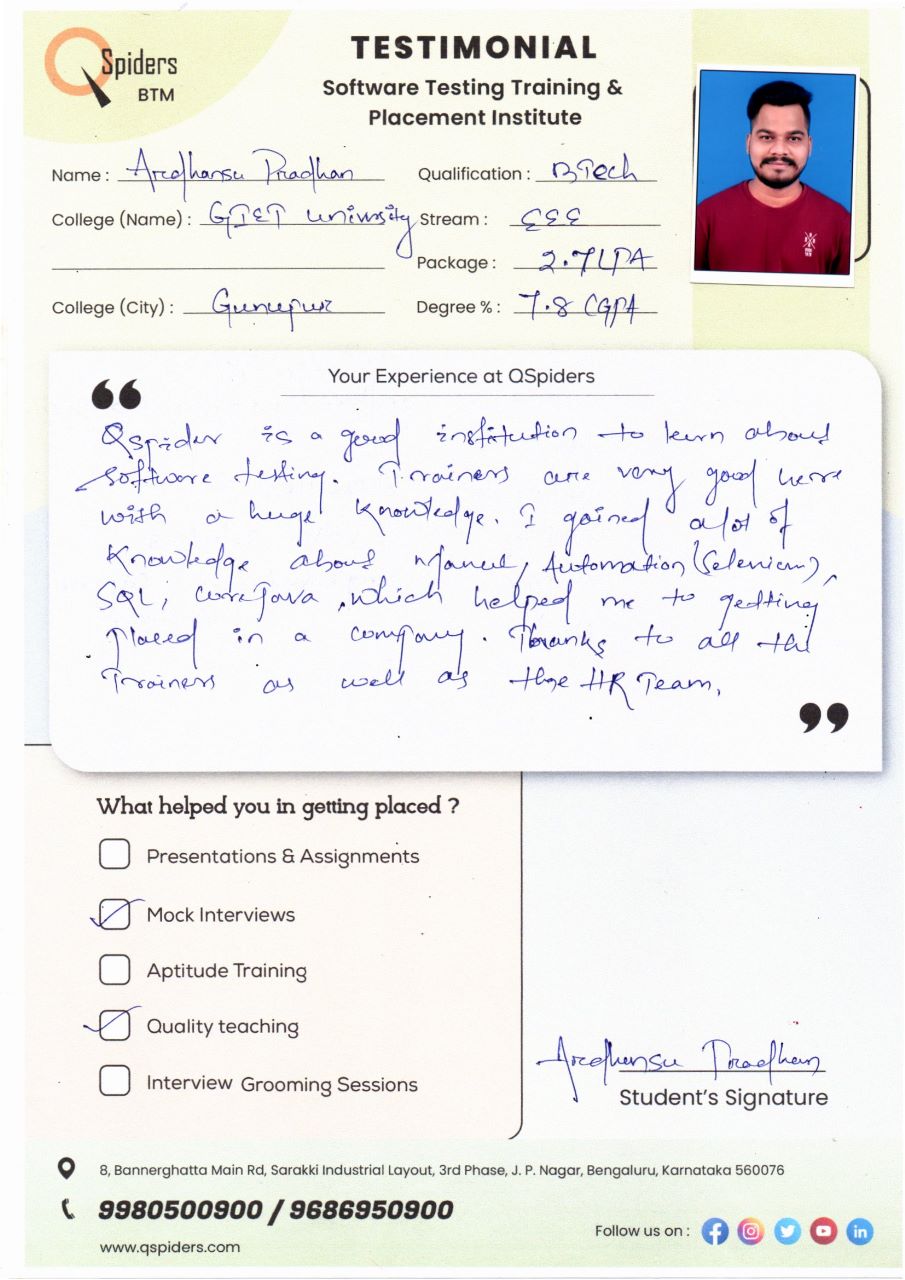 QSpiders
BTM
TESTIMONIAL
Software Testing Training &
Placement Institute
Name : Ardhansu Pradhan
Qualification : B.Tech
College (Name) : GIET University
Stream : EEE
Package : 2.7 LPA
College (City) : Gunupur
Degree % : 7.8 CGPA
Your Experience at QSpiders
Qspider is a good institution to learn about
software testing. Trainers are very good here
with a huge knowledge. I gained a lot of
knowledge about Manual, Automation (Selenium),
SQL, core Java, which helped me to getting
placed in a company. Thanks to all the
Trainers as well as the HR Team.
What helped you in getting placed ?
Presentations & Assignments
Mock Interviews
Aptitude Training
Quality teaching
Interview Grooming Sessions
Ardhansu Pradhan
Student's Signature
8, Bannerghatta Main Rd, Sarakki Industrial Layout, 3rd Phase, J. P. Nagar, Bengaluru, Karnataka 560076
9980500900 / 9686950900
www.qspiders.com
Follow us on :